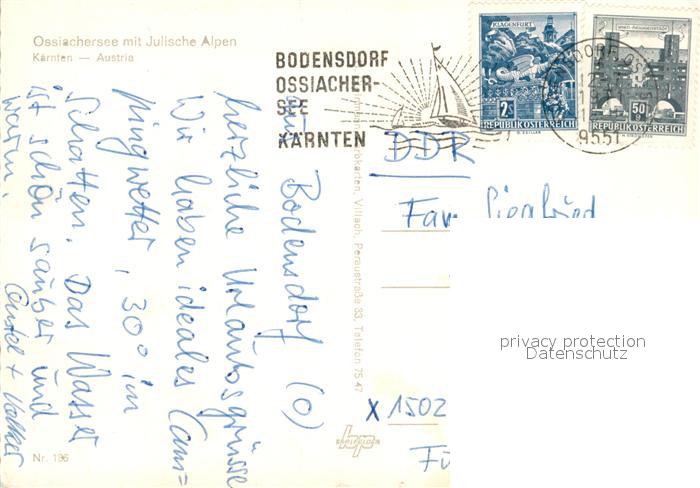 Ossiachersee mit Julische Alpen
Kärnten — Austria
BODENSDORF
OSSIACHER-
SEE
KÄRNTEN
KLAGENFURT
2S
REPUBLIK ÖSTERREICH
50g
REPUBLIK ÖSTERREICH
9551
Bodensdorf (O)
herzliche Urlaubsgrüsse
Wir haben ideales Cam=
pingwetter, 30° in
Schatten. Das Wasser
ist schön sauber und
warm.
+ Volker
Villach, Peraustraße 33, Telefon 75 47
DDR
Fam. Siegfried
X 1502
Nr. 186
privacy protection
Datenschutz